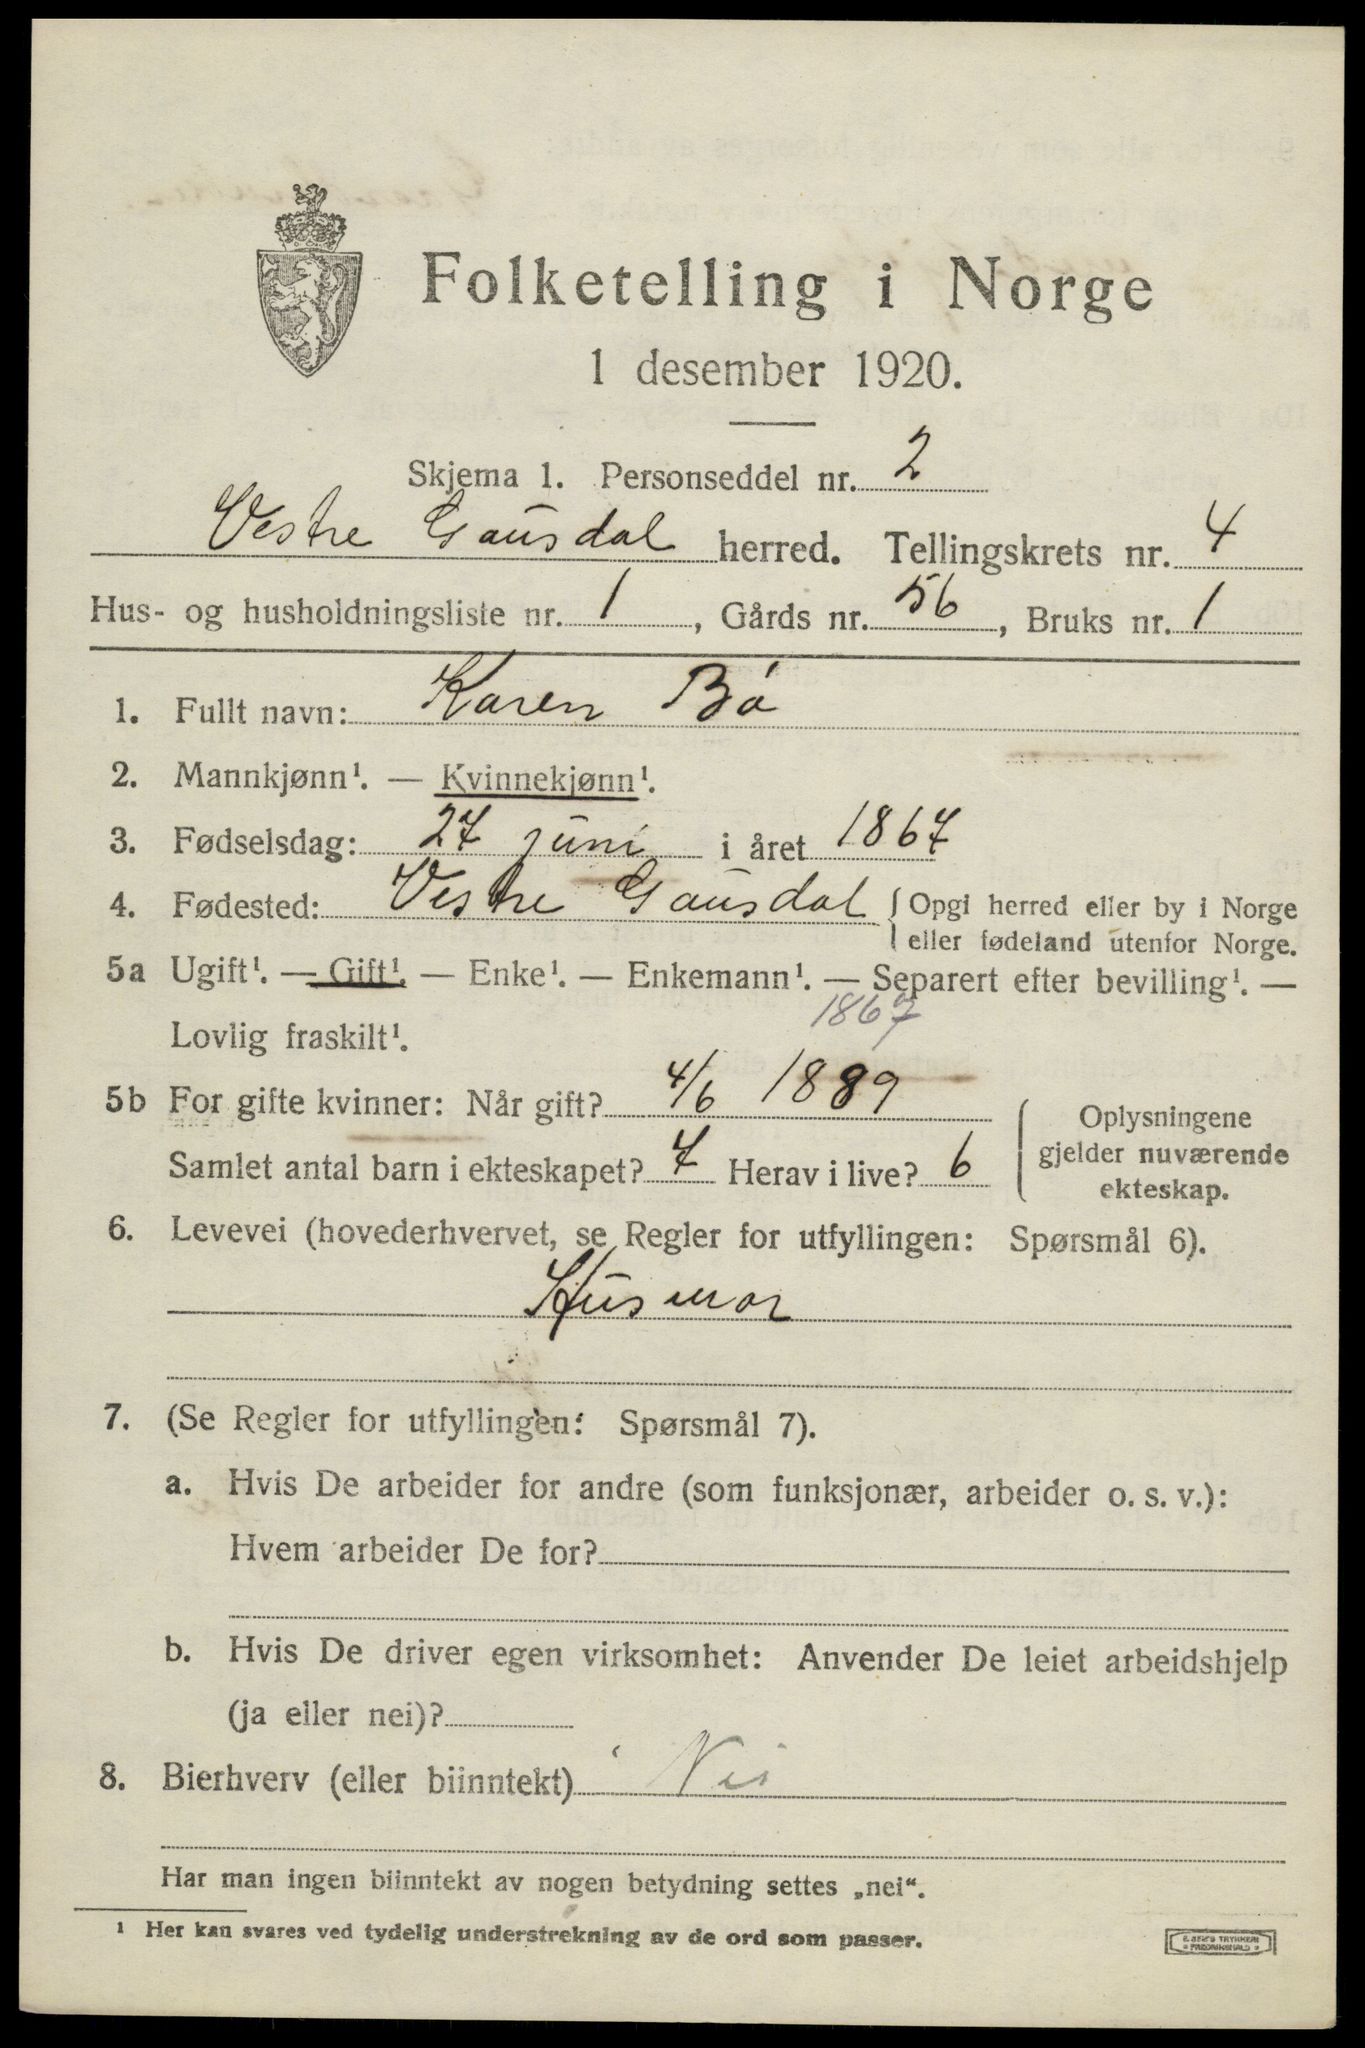 Folketelling i Norge
1 desember 1920.
Skjema 1. Personseddel nr. 2
Vestre Gausdal herred. Tellingskrets nr. 4
Hus- og husholdningsliste nr. 1, Gårds nr. 56, Bruks nr. 1
1. Fullt navn: Karen Bø
2. Mannkjønn¹. — Kvinnekjønn¹.
3. Fødselsdag: 27 juni i året 1867
4. Fødested: Vestre Gausdal { Opgi herred eller by i Norge
eller fødeland utenfor Norge.
5a Ugift¹. — Gift¹. — Enke¹. — Enkemann¹. — Separert efter bevilling¹. —
1867
Lovlig fraskilt¹.
5b For gifte kvinner: Når gift? 4/6 1889
Samlet antal barn i ekteskapet? 7 Herav i live? 6
Oplysningene
gjelder nuværende
ekteskap.
6. Levevei (hovederhvervet, se Regler for utfyllingen: Spørsmål 6).
Husmor
7. (Se Regler for utfyllingen: Spørsmål 7).
a. Hvis De arbeider for andre (som funksjonær, arbeider o. s. v.):
Hvem arbeider De for?
b. Hvis De driver egen virksomhet: Anvender De leiet arbeidshjelp
(ja eller nei)?
8. Bierhverv (eller biinntekt) Nei
Har man ingen biinntekt av nogen betydning settes „nei“.
¹ Her kan svares ved tydelig understrekning av de ord som passer.